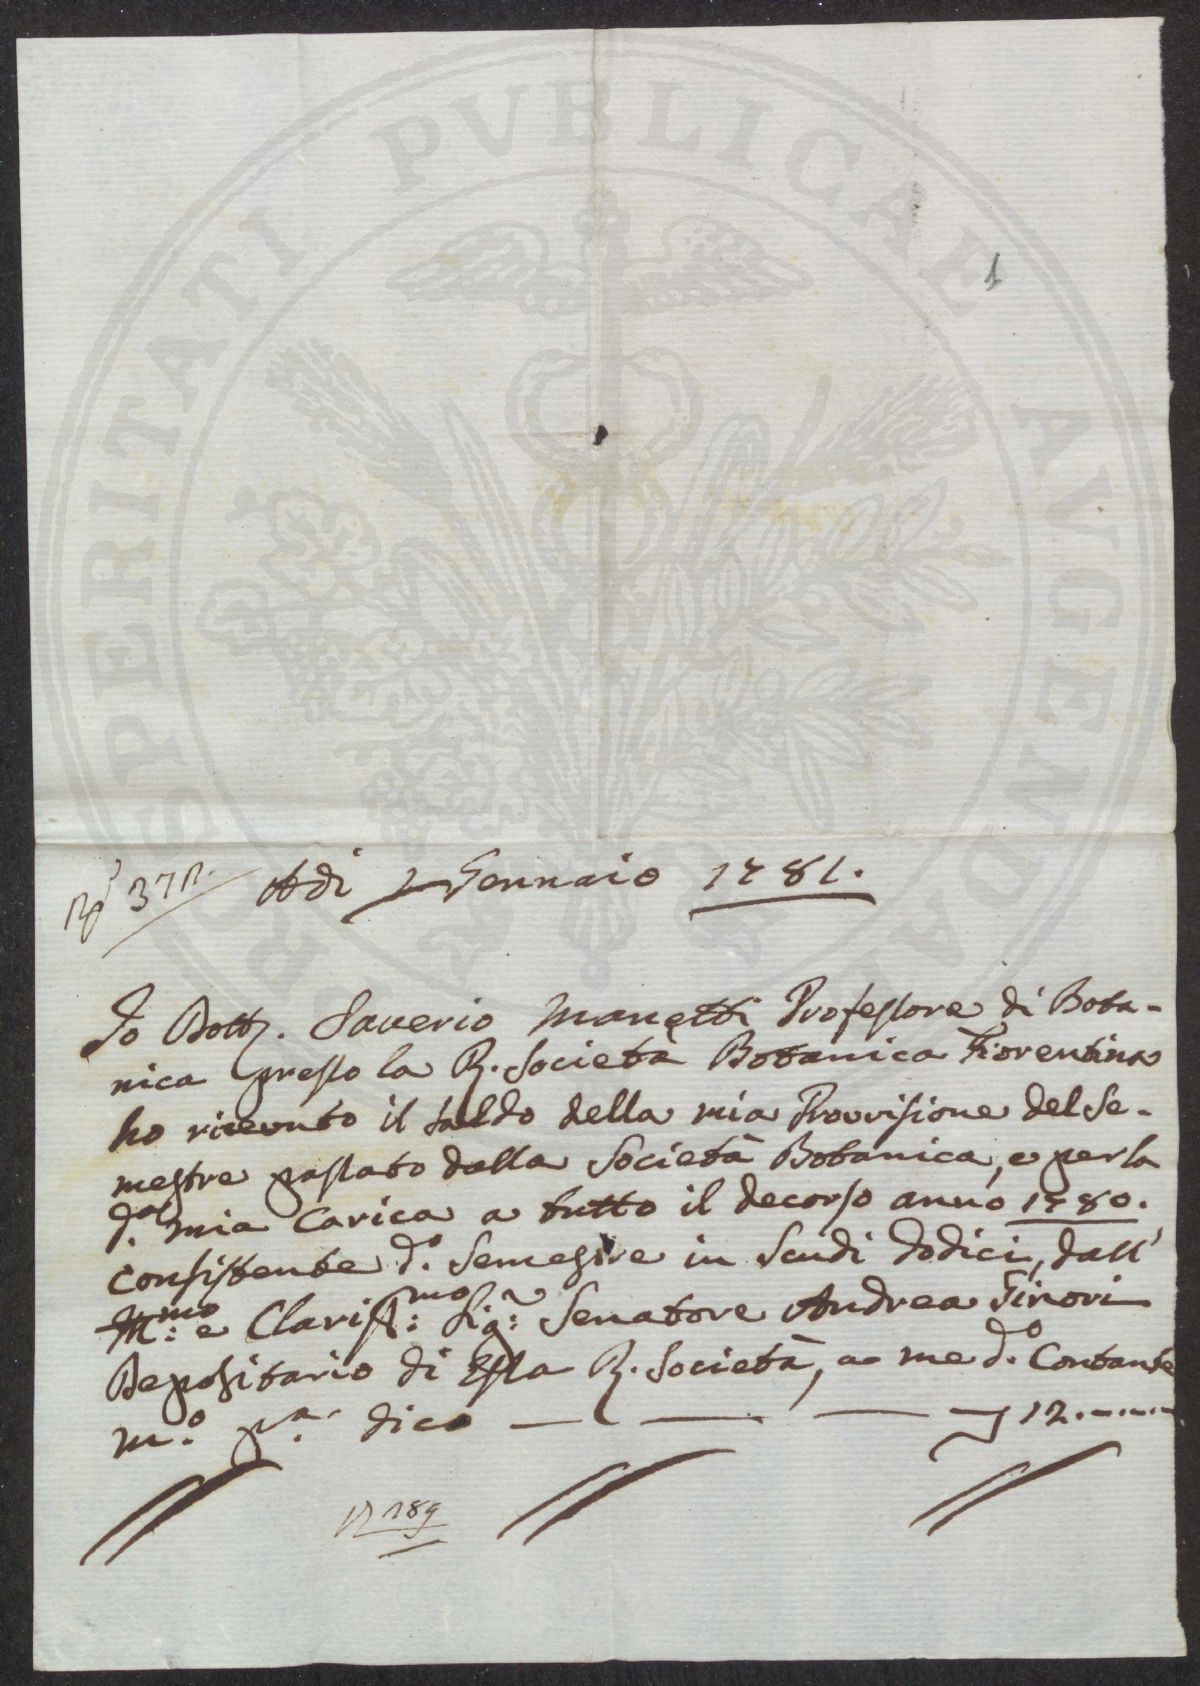 1
Adi 2 Gennaio 1781.
Io Dott. Saverio Manetti Professore di Bota-
nica presso la R. Società Botanica Fiorentina
ho ricevuto il saldo della mia Provvisione del Se-
mestre passato dalla Società Botanica, e per la
d.al mia Carica a tutto il decorso anno 1780.
consistente d.o Semestre in Scudi dodici, dall'
Ill.mo e Clariss.mo Sig.r Senatore Andrea Ginori
Depositario di Essa R. Società, a me d.o Contante
m.o p.a dico — — — 12.----
N 189